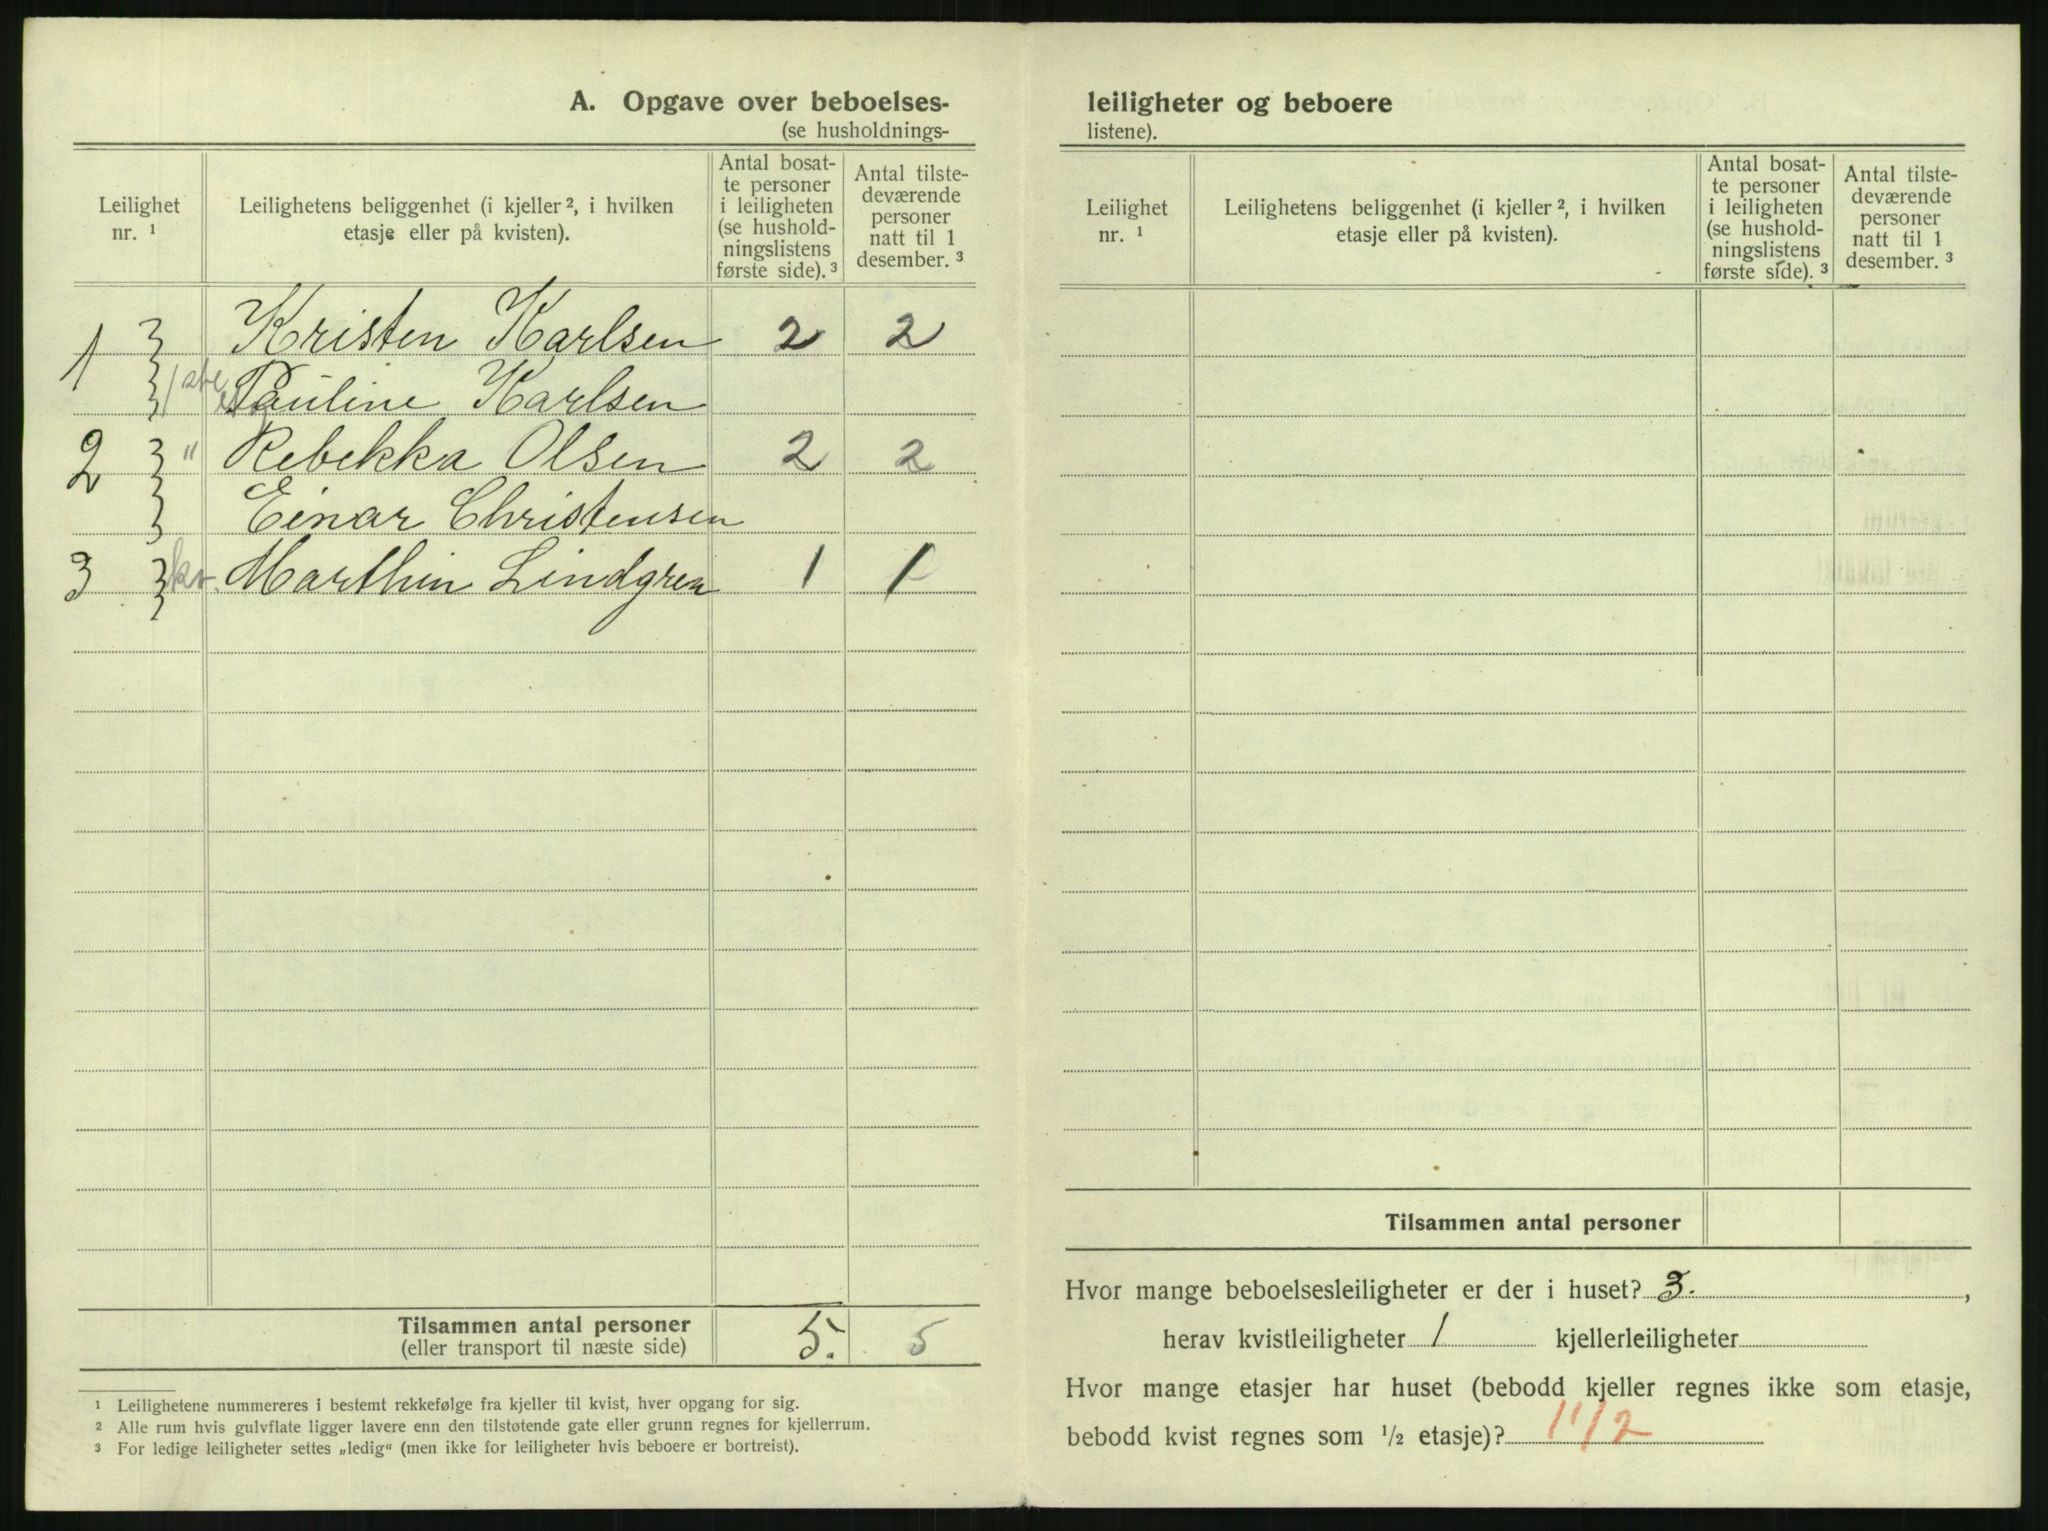 A. Opgave over beboelses-
(se husholdnings-
Leilighet nr. ¹
Leilighetens beliggenhet (i kjeller ², i hvilken etasje eller på kvisten).
Antal bosat-
te personer
i leiligheten
(se hushold-
ningslistens
første side). ³
Antal tilste-
deværende
personer
natt til 1
desember. ³
1 Kristen Karlsen 2 2
1ste etg Pauline Karlsen
2 " Rebekka Olsen 2 2
Einar Christensen
3 kv. Marthin Lindgren 1 1
Tilsammen antal personer 5. 5
(eller transport til næste side)
¹ Leilighetene nummereres i bestemt rekkefølge fra kjeller til kvist, hver opgang for sig.
² Alle rum hvis gulvflate ligger lavere enn den tilstøtende gate eller grunn regnes for kjellerrum.
³ For ledige leiligheter settes „ledig" (men ikke for leiligheter hvis beboere er bortreist).
leiligheter og beboere
listene).
Leilighet nr. ¹
Leilighetens beliggenhet (i kjeller ², i hvilken etasje eller på kvisten).
Antal bosat-
te personer
i leiligheten
(se hushold-
ningslistens
første side). ³
Antal tilste-
deværende
personer
natt til 1
desember. ³
Tilsammen antal personer
Hvor mange beboelsesleiligheter er der i huset? 3. ,
herav kvistleiligheter 1 kjellerleiligheter
Hvor mange etasjer har huset (bebodd kjeller regnes ikke som etasje,
bebodd kvist regnes som ½ etasje)? 1 1/2